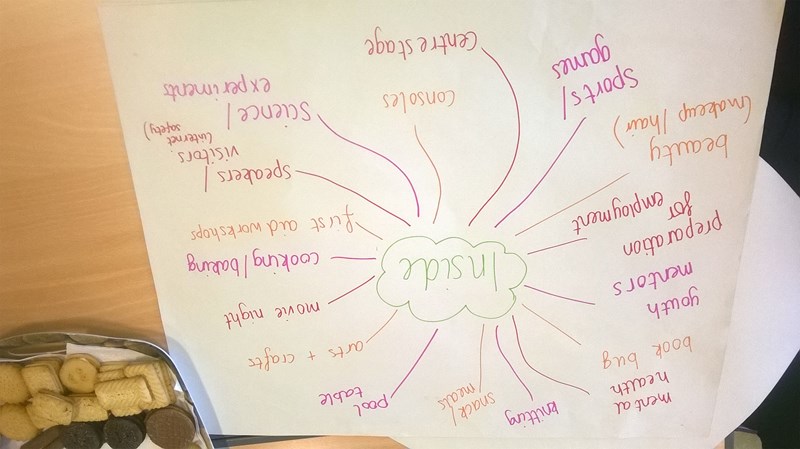 Inside
mental
health
knitting
snack/
meals
pool
table
arts + crafts
movie night
cooking/baking
first aid workshops
speakers/
visitors
(internet
safety)
science/
experiments
consoles
Centrestage
sports/
games
beauty
(makeup/hair)
preparation
for employment
youth
mentors
book bug